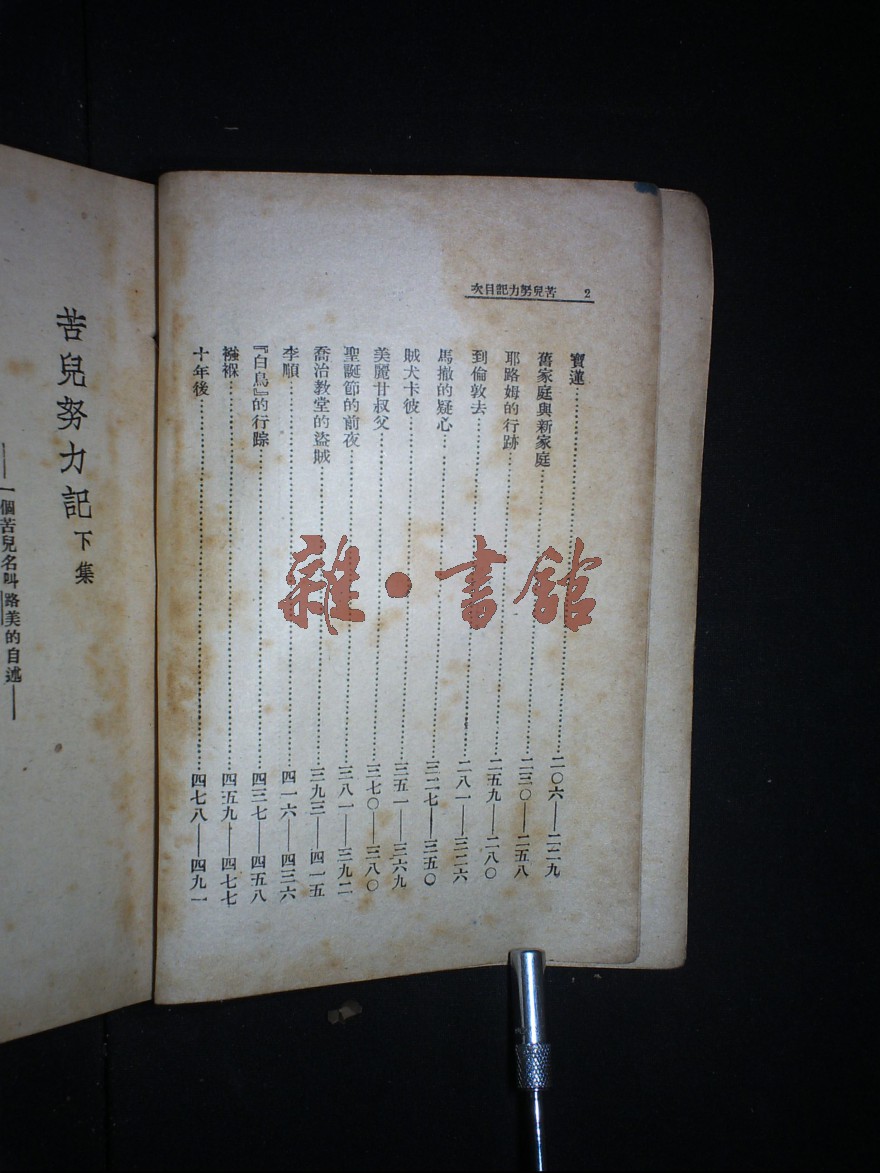 苦兒努力記目次 2
寶蓮……二〇六——二二九
舊家庭與新家庭……二三〇——二五八
耶路姆的行跡……二五九——二八〇
到倫敦去……二八一——三二六
馬撤的疑心……三二七——三五〇
賊犬卡彼……三五一——三六九
美麗甘叔父……三七〇——三八〇
聖誕節的前夜……三八一——三九二
喬治教堂的盜賊……三九三——四一五
李順……四一六——四三六
『白鳥』的行踪……四三七——四五八
襁褓……四五九——四七七
十年後……四七八——四九一
苦兒努力記下集
——一個苦兒名叫路美的自述——
雜·書館